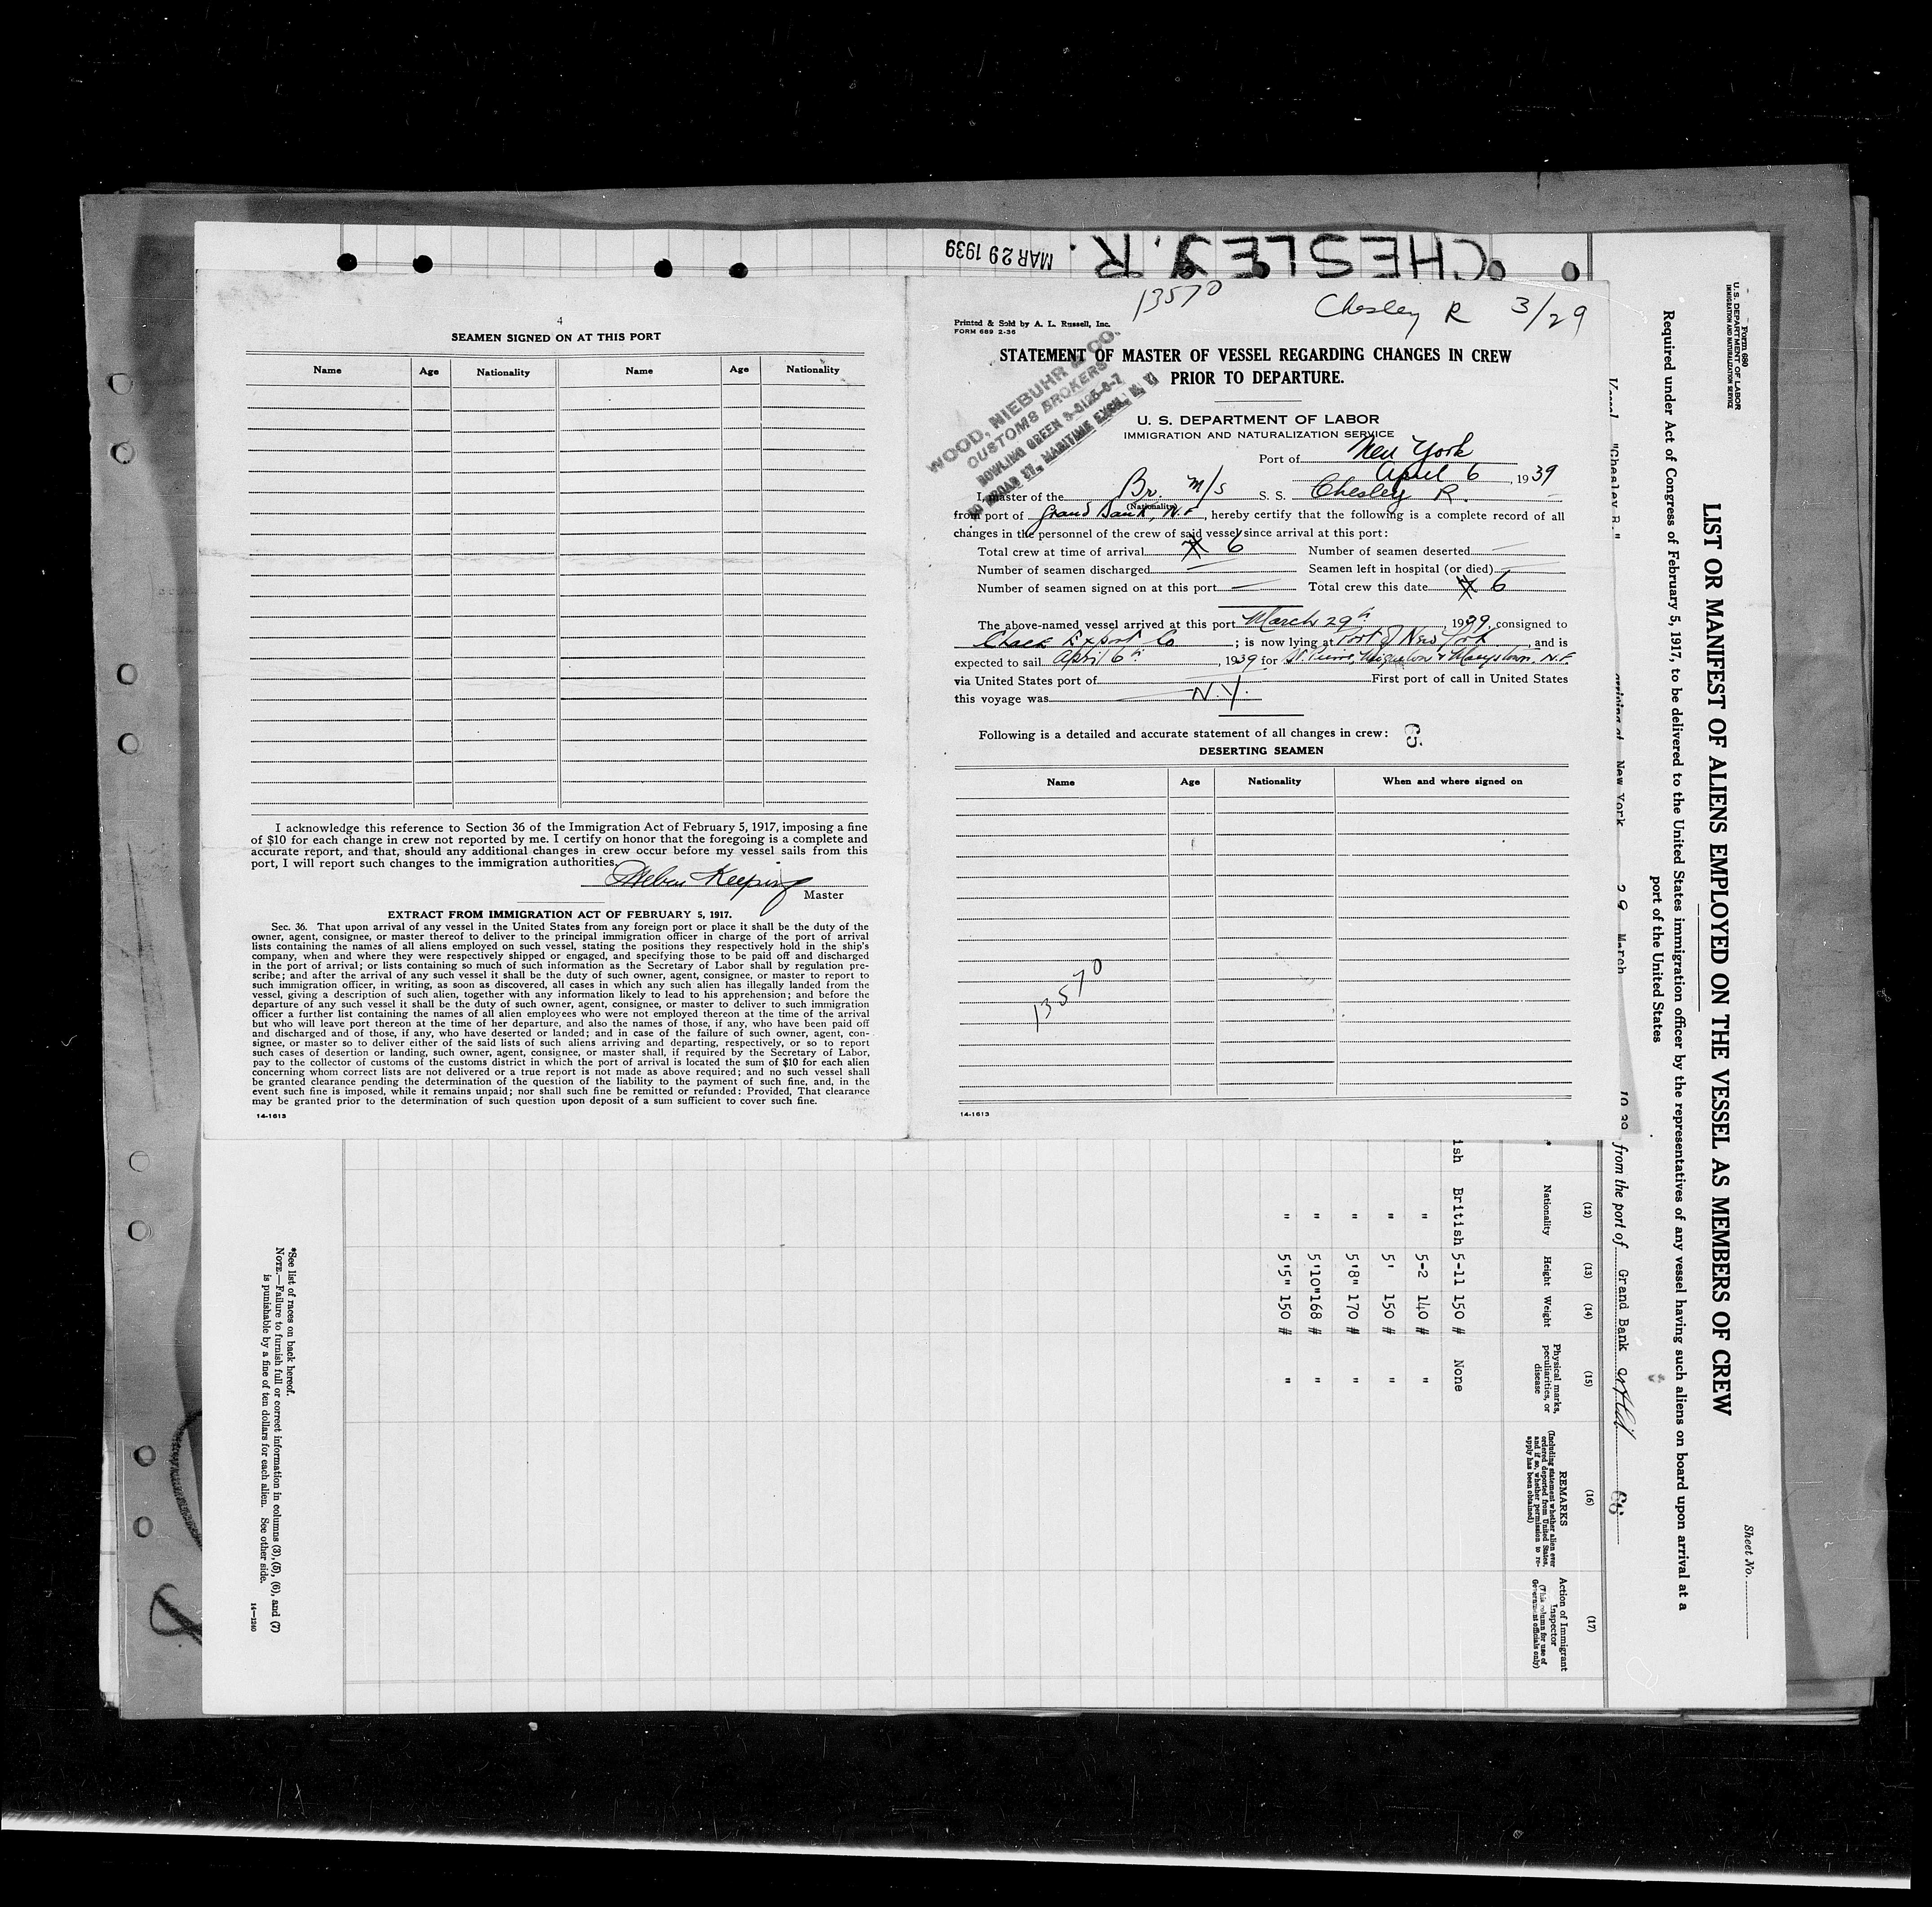 CHESLEY. R.
MAR 29 1939
4
SEAMEN SIGNED ON AT THIS PORT
Name Age Nationality Name Age Nationality
I acknowledge this reference to Section 36 of the Immigration Act of February 5, 1917, imposing a fine
of $10 for each change in crew not reported by me. I certify on honor that the foregoing is a complete and
accurate report, and that, should any additional changes in crew occur before my vessel sails from this
port, I will report such changes to the immigration authorities.
Keeping
Master
EXTRACT FROM IMMIGRATION ACT OF FEBRUARY 5, 1917.
Sec. 36. That upon arrival of any vessel in the United States from any foreign port or place it shall be the duty of the
owner, agent, consignee, or master thereof to deliver to the principal immigration officer in charge of the port of arrival
lists containing the names of all aliens employed on such vessel, stating the positions they respectively hold in the ship's
company, when and where they were respectively shipped or engaged, and specifying those to be paid off and discharged
in the port of arrival; or lists containing so much of such information as the Secretary of Labor shall by regulation pre-
scribe; and after the arrival of any such vessel it shall be the duty of such owner, agent, consignee, or master to report to
such immigration officer, in writing, as soon as discovered, all cases in which any such alien has illegally landed from the
vessel, giving a description of such alien, together with any information likely to lead to his apprehension; and before the
departure of any such vessel it shall be the duty of such owner, agent, consignee, or master to deliver to such immigration
officer a further list containing the names of all alien employees who were not employed thereon at the time of the arrival
but who will leave port thereon at the time of her departure, and also the names of those, if any, who have been paid off
and discharged and of those, if any, who have deserted or landed; and in case of the failure of such owner, agent, con-
signee, or master so to deliver either of the said lists of such aliens arriving and departing, respectively, or so to report
such cases of desertion or landing, such owner, agent, consignee, or master shall, if required by the Secretary of Labor,
pay to the collector of customs of the customs district in which the port of arrival is located the sum of $10 for each alien
concerning whom correct lists are not delivered or a true report is not made as above required; and no such vessel shall
be granted clearance pending the determination of the question of the liability to the payment of such fine, and, in the
event such fine is imposed, while it remains unpaid; nor shall such fine be remitted or refunded: Provided, That clearance
may be granted prior to the determination of such question upon deposit of a sum sufficient to cover such fine.
14-1613
13570
Chesley R 3/29
Printed & Sold by A. L. Russell, Inc.
FORM 689 2-36
WOOD, NIEBUHR & CO.
CUSTOMS BROKERS
BOWLING GREEN 9-5125-6-7
BROAD ST., MARITIME EXCH., N. Y.
STATEMENT OF MASTER OF VESSEL REGARDING CHANGES IN CREW
PRIOR TO DEPARTURE.
U. S. DEPARTMENT OF LABOR
IMMIGRATION AND NATURALIZATION SERVICE
Port of New York
April 6, 1939
I, master of the Br. m/s S. S. Chesley R.
(Nationality)
from port of Grand Bank, N.F., hereby certify that the following is a complete record of all
changes in the personnel of the crew of said vessel since arrival at this port:
Total crew at time of arrival 6 Number of seamen deserted
Number of seamen discharged Seamen left in hospital (or died)
Number of seamen signed on at this port Total crew this date 6
The above-named vessel arrived at this port March 29th, 1939, consigned to
Export Co; is now lying at Port of New York, and is
expected to sail April 6th, 1939 for St. Pierre, Miquelon & Marystown. N.F.
via United States port of First port of call in United States
this voyage was N.Y.
Following is a detailed and accurate statement of all changes in crew: 65
DESERTING SEAMEN
Name Age Nationality When and where signed on
13570
14-1613
Form 680
U. S. DEPARTMENT OF LABOR
IMMIGRATION AND NATURALIZATION SERVICE
Sheet No.
LIST OR MANIFEST OF ALIENS EMPLOYED ON THE VESSEL AS MEMBERS OF CREW
Required under Act of Congress of February 5, 1917, to be delivered to the United States immigration officer by the representatives of any vessel having such aliens on board upon arrival at a
port of the United States
Vessel "Chesley R." arriving at New York 29 March 1939 from the port of Grand Bank Nfld 65
(12) (13) (14) (15) (16) (17)
Nationality Height Weight Physical marks, peculiarities, or disease REMARKS (Including statement whether alien ever ordered deported from United States, and if so, whether permission to re-apply has been obtained) Action of Immigrant Inspector (This column for use of Government officials only)
ish British 5-11 150 # None
" 5-2 140 # "
" 5' 150 # "
" 5'8" 170 # "
" 5'10" 168 # "
" 5'5" 150 # "
*See list of races on back hereof.
NOTE.—Failure to furnish full or correct information in columns (3), (5), (6), and (7)
is punishable by a fine of ten dollars for each alien. See other side.
14—1240